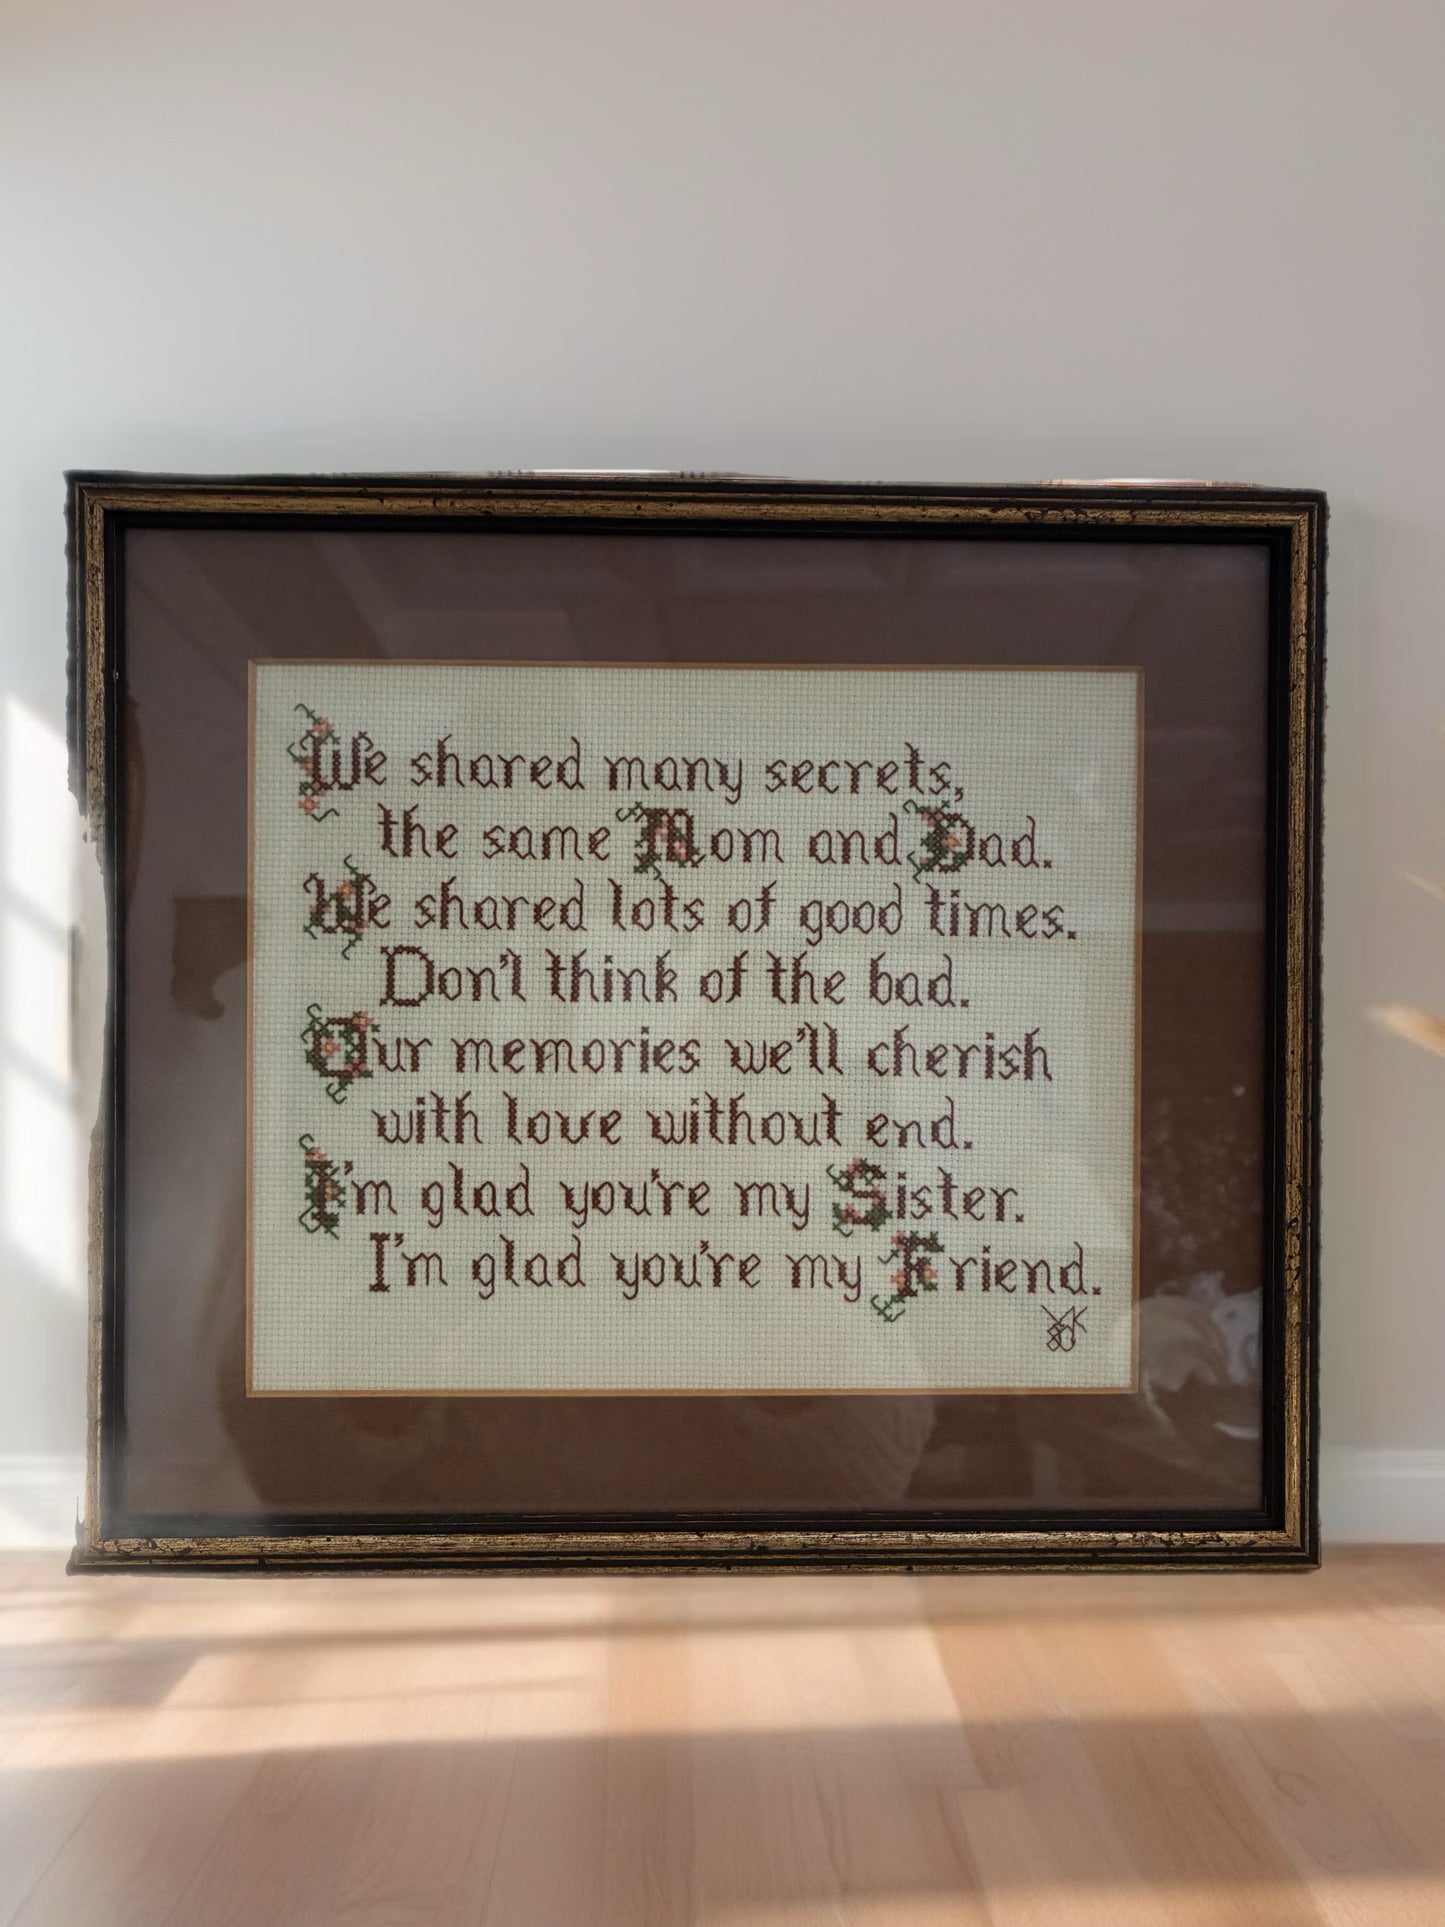 We shared many secrets,
the same Mom and Dad.
We shared lots of good times.
Don't think of the bad.
Our memories we'll cherish
with love without end.
I'm glad you're my Sister.
I'm glad you're my Friend.